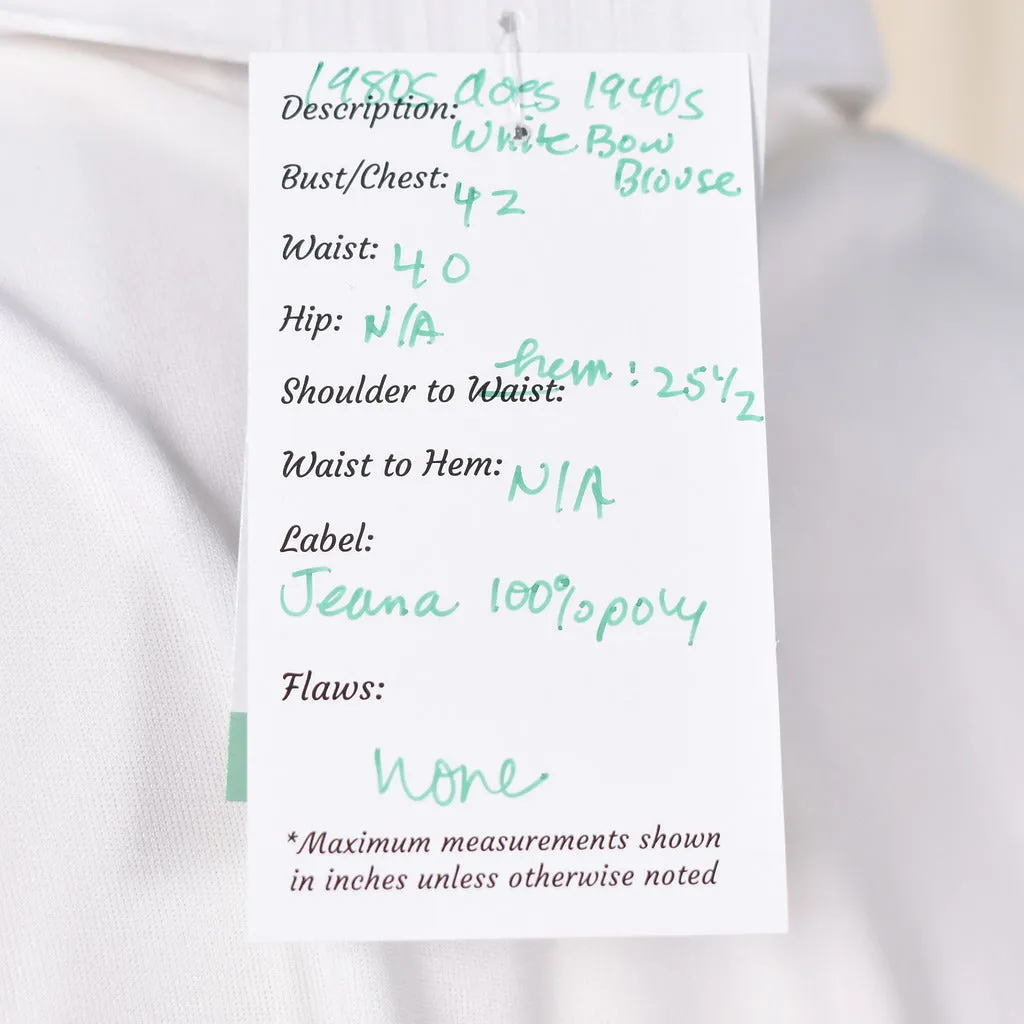 1980s does 1940s
Description:
White Bow
Blouse
Bust/Chest: 42
Waist: 40
Hip: N/A
hem: 25 1/2
Shoulder to Waist:
Waist to Hem: N/A
Label:
Jeana 100% poly
Flaws:
None
*Maximum measurements shown
in inches unless otherwise noted